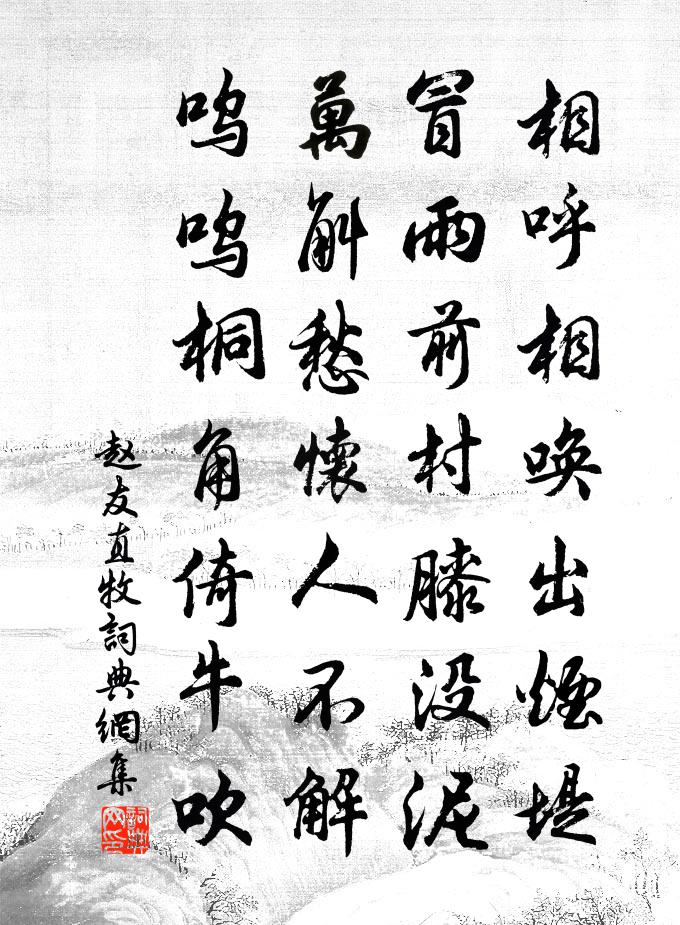 相呼相唤出煙堤
冒雨前村膝没泥
萬斛愁懷人不解
呜呜桐角倚牛吹
赵友直牧詞典網集